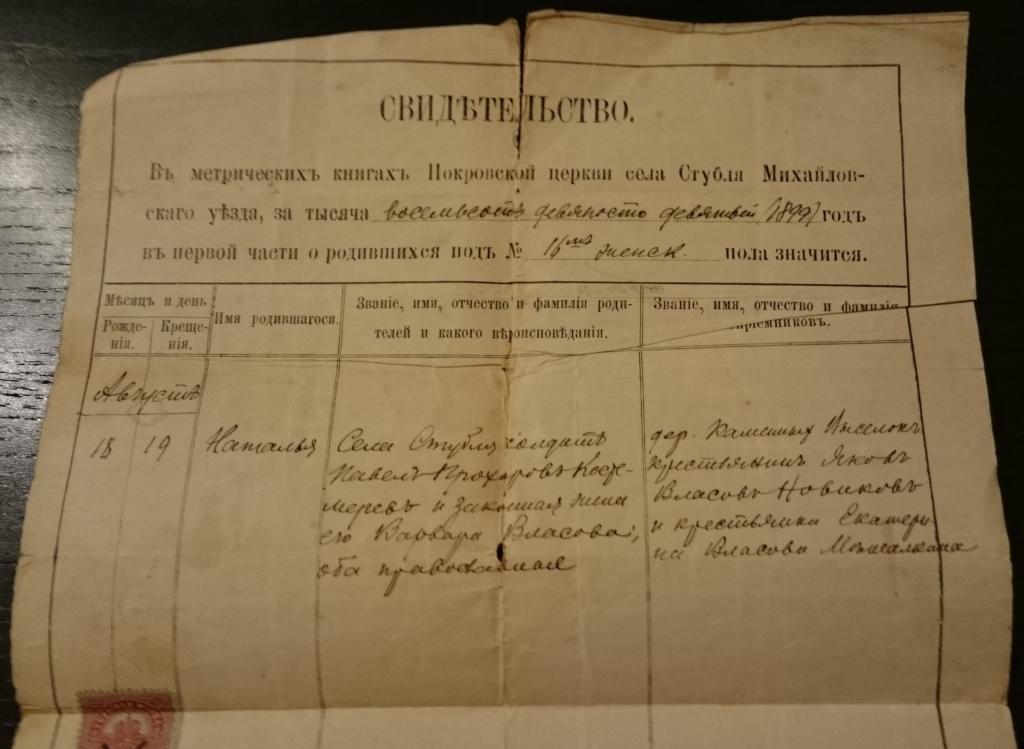 СВИДѢТЕЛЬСТВО.
Въ метрическихъ книгахъ Покровской церкви села Стубля Михайлов-
скаго уѣзда, за тысяча восемьсотъ девяносто девятый (1899) годъ
въ первой части о родившихся подъ № женск. пола значится.
Мѣсяцъ и день
Рожде-
нія.
Креще-
нія.
Имя родившагося.
Званіе, имя, отчество и фамилія роди-
телей и какого вѣроисповѣданія.
Званіе, имя, отчество и фамилія
воспріемниковъ.
Августъ
18
19
Наталья
Села Стубля солдатъ
Павелъ Прохоровъ
и законная жена
его Варвара Власова,
оба православные
дер. Каменныхъ Выселокъ
крестьянинъ Яковъ
Власовъ Новиковъ
и крестьянка Екатери-
на Власова